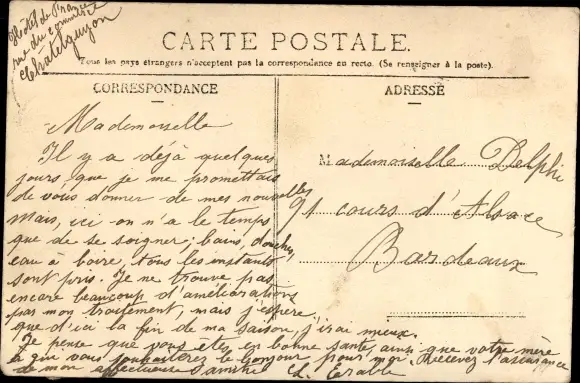 Hôtel de France
rue du commerce
Châtelguyon
CARTE POSTALE.
Tous les pays étrangers n'acceptent pas la correspondance au recto. (Se renseigner à la poste).
CORRESPONDANCE
Mademoiselle
Il y a déjà quelques
jours que je me promettais
de vous donner de mes nouvelles
mais, ici on n'a le temps
que de se soigner; bains, douches,
eau à boire, tous les instants
sont pris. Je ne trouve pas
encore beaucoup d'améliorations
par mon traitement, mais j'espère,
que d'ici la fin de ma saison, j'irai mieux.
Je pense que vous êtes en bonne santé, ainsi que votre mère
à qui vous souhaiterez le bonjour pour moi. Recevez l'assurance
de mon affectueuse amitié
ADRESSE
Mademoiselle Delphi
91 cours d'Alsace
Bordeaux